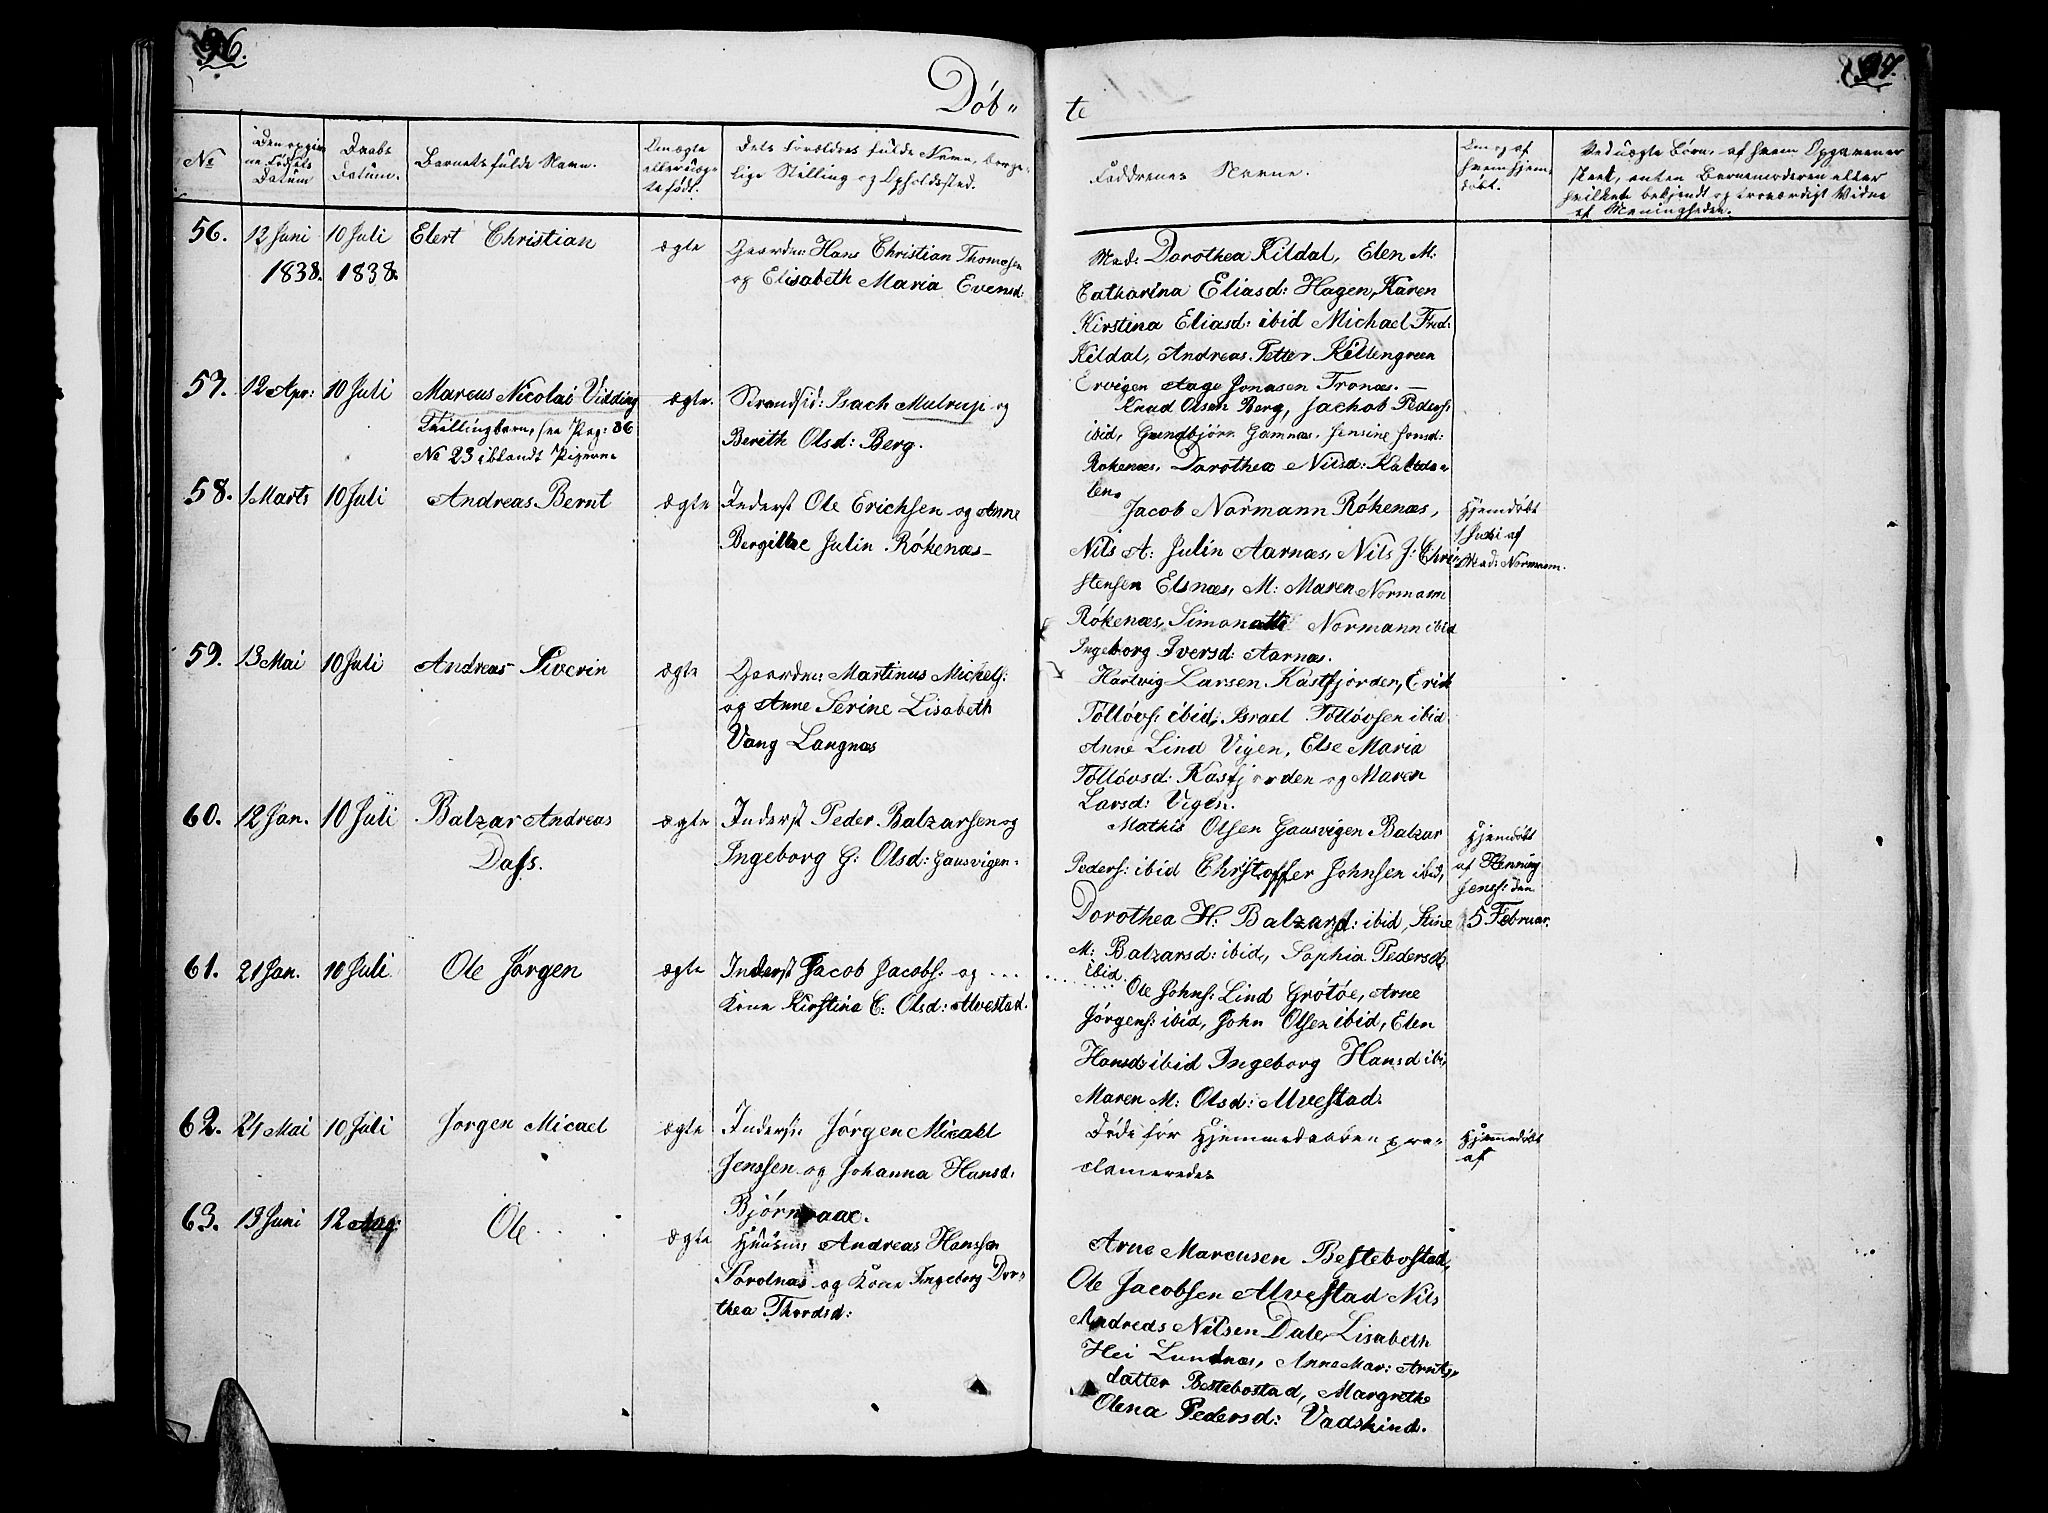 96.
97.
Döb-
te
No
Den opgiv-
ne Fødsels
Datum
Daabs
Datum.
Barnets fulde Navn.
Om ægte
eller uæg-
te født.
Dets Forældres fulde Navn, borger-
lige Stilling og Opholdssted.
Faddrenes Navne.
Om og af
hvem hjem-
døbt.
Ved uægte Børn, af hvem Opgavener
skeet, enten Barnemoderen eller
hvilket bekjendt og troværdigt Vidne
af Menigheden.
56.
12 Juni
1838.
10 Juli
1838.
Elert Christian
ægte
Gaardm: Hans Christian Thomesen
og Elisabeth Maria Evensd:
Mad: Dorothea Kildal, Elen M:
Catharina Eliasd: Hagen, Karen
Kirstina Eliasd: ibid Michael Fred:
Kildal, Andreas Petter Killengreen
Ervigen Aage Jonasen Tronæs. —
57.
12 Apr:
10 Juli
Marcus Nicolai Vidding
Tvillingbarn, see Pag: 86
No 23 iblandt Pigerne
ægte.
Strandsid: Isach Mutrup og
Berith Olsd: Berg.
Knud Olsen Berg, Jachob Peders:
ibid, Gundbjörn Gamnæs, Jensine Jonsd:
Rökenæs, Dorothea Nilsd: Kalda-
len.
58.
1 Marts
10 Juli
Andreas Bernt
ægte
Inderst Ole Erichsen og Anne
Bergitte Julin Rökenæs —
Jacob Normann Rökenæs,
Nils A: Julin Aarnæs, Nils J: Chri-
stensen Elsnæs, M: Maren Normann
Rökenæs, Simonatte Normann ibid
Ingeborg Iversd: Aarnæs.
Hjemdöbt
1 Juni af
Mad: Normann.
59.
13 Mai
10 Juli
Andreas Siverin
ægte
Gaardm: Martinus Michels:
og Anne Serine Lisabeth
Vang Langnæs
Hartvig Larsen Kastfjorden, Erik
Tollövs: ibid, Israel Tollövsen ibid
Anne Lind Vigen, Else Maria
Tollövsd: Kasfjorden og Maren
Larsd: Vigen.
60.
12 Jan.
10 Juli
Balzar Andreas
Dass.
ægte
Inderst Peder Balzarsen og
Ingeborg G: Olsd: Gausvigen.
Mathis Olsen Gausvigen Balzar
Peders: ibid Christoffer Johnsen ibid,
Dorothea H: Balzarsd: ibid, Stine
M: Balzarsd: ibid, Sophia Pedersd:
ibid.
Hjemdöbt
af Henning
Jens: den
5 Februar.
61.
21 Jan.
10 Juli
Ole Jörgen
ægte
Inderst Jacob Jacobs: og ...
Kone Kirstine C: Olsd: Alvestad.
Ole Johns: Lind Grötöe, Arne
Jörgens: ibid, John Olsen ibid, Elen
Hansd: ibid Ingeborg Hansd ibi,
Maren M: Olsd: Alvestad.
62.
21 Mai
10 Juli
Jörgen Micael
ægte
Inderst: Jörgen Micael
Jenssen og Johanna Hansd:
Björnraae.
Döde för Hjemmedaaben pro-
clameredes
Hjemmedöbt
af
63.
13 Juni
12 Aug:
Ole
ægte
Huusm: Andreas Hanssen
Sörolnæs og Kone Ingeborg Dor-
thea Thordsd:
Arne Marcusen Bestebostad,
Ole Jacobsen Alvestad Nils
Andreas Nilsen Dale, Lisabeth
Hei Lundnæs, Anne Mar: Arnts-
datter Bestebostad, Margrethe
Olena Pedersd: Vadskind.